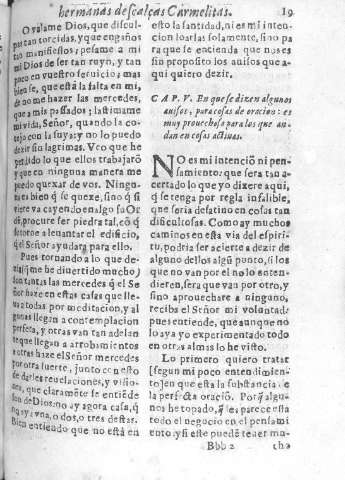 hermanas descalças Carmelitas. 19
O valame Dios, que discul-
pas tan torcidas, y que engaños
tan manifiestos; pesame a mi
mi Dios de ser tan ruyn, y tan
poco en vuestro seruicio; mas
bien se, que está la falta en mi,
de no me hazer las mercedes,
que a mis passados; lastimame
mi vida, Señor, quando la co-
tejo con la suya: y no lo puedo
dezir sin lagrimas. Veo que he
perdido lo que ellos trabajarõ
y que en ninguna manera me
puedo quexar de vos. Ningu-
na es bien q̃ se quexe, sino q̃ si
viere va cayendo en algo su Or
dẽ, procure ser piedra tal, cõ q̃
se torne a leuantar el edificio,
q̃ el Señor ayudará para ello.
Pues tornando a lo que de-
zia (q̃ me he diuertido mucho)
son tantas las mercedes q̃ el Se
ñor haze en estas casas que lle-
ua a todas por meditacion, y al
gunas llegan a contemplacion
perfeta, y otras van tan adelan
te que llegan a arrobamientos
a otras haze el Señor mercedes
por otra suerte, junto con esto
se dales reuelaciones, y visio-
nes, que claramente se entiẽde
son de Dios: no ay agora casa, q̃
no aya vna, o dos, o tres destas.
Bien entiendo que no está en
esto la santidad, ni es mi inten-
cion loarlas solamente, sino pa
ra que se entienda que no es
sin proposito los auisos que a-
qui quiero dezir.
CAP. V. En que se dizen algunos
auisos, para cosas de oracion: es
muy prouechoso para los que an-
dan en cosas actiuas.
NO es mi intenciõ ni pen-
samiento: que sera tan a-
certado lo que yo dixere aqui,
q̃ se tenga por regla infalible,
que seria desatino en cosas tan
dificultosas. Como ay muchos
caminos en esta via del espiri-
tu, podria ser acierte a dezir de
alguno dellos algũ punto, si los
que no van por el no lo enten-
dieren, sera que van por otro, y
sino aprouechare a ninguno,
reciba el Señor mi voluntad:
pues entiende, que aunque no
lo aya yo experimentado todo
en otras almas lo he visto.
Lo primero quiero tratar
(segun mi poco entendimien-
to) en que esta la substancia de
la perfecta oracion. Porq̃ algu-
nos he topado, q̃ les parece esta
todo el negocio en el pensam
iento: y si este puedẽ tener mu-
Bbb 2 cho